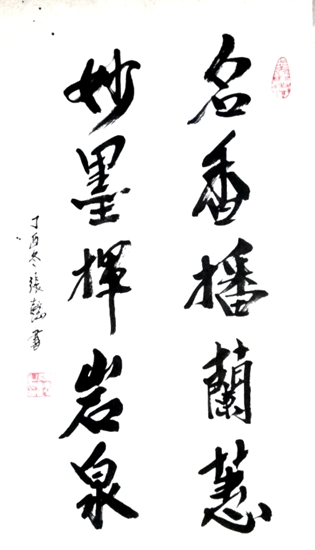 名香播蘭蕙
妙墨揮岩泉
丁酉冬張書